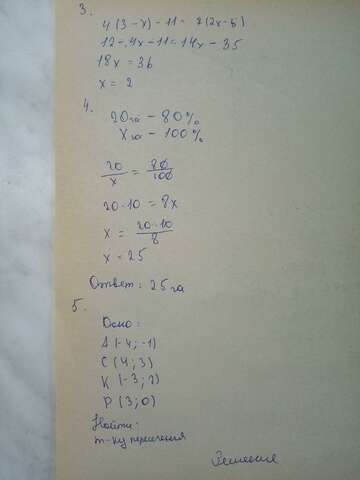 3.
4(3-x)-11= 7(2x-5)
12-4x-11=14x-35
18x=36
x=2
4.
20га-80%
Xга-100%
20/x=80/100
20·10=8x
x=20·10/8
x=25
Ответ: 25га
5.
Дано:
A(-4;-1)
C(4;3)
K(-3;2)
P(3;0)
Найти:
т-ку пересечения
Решение